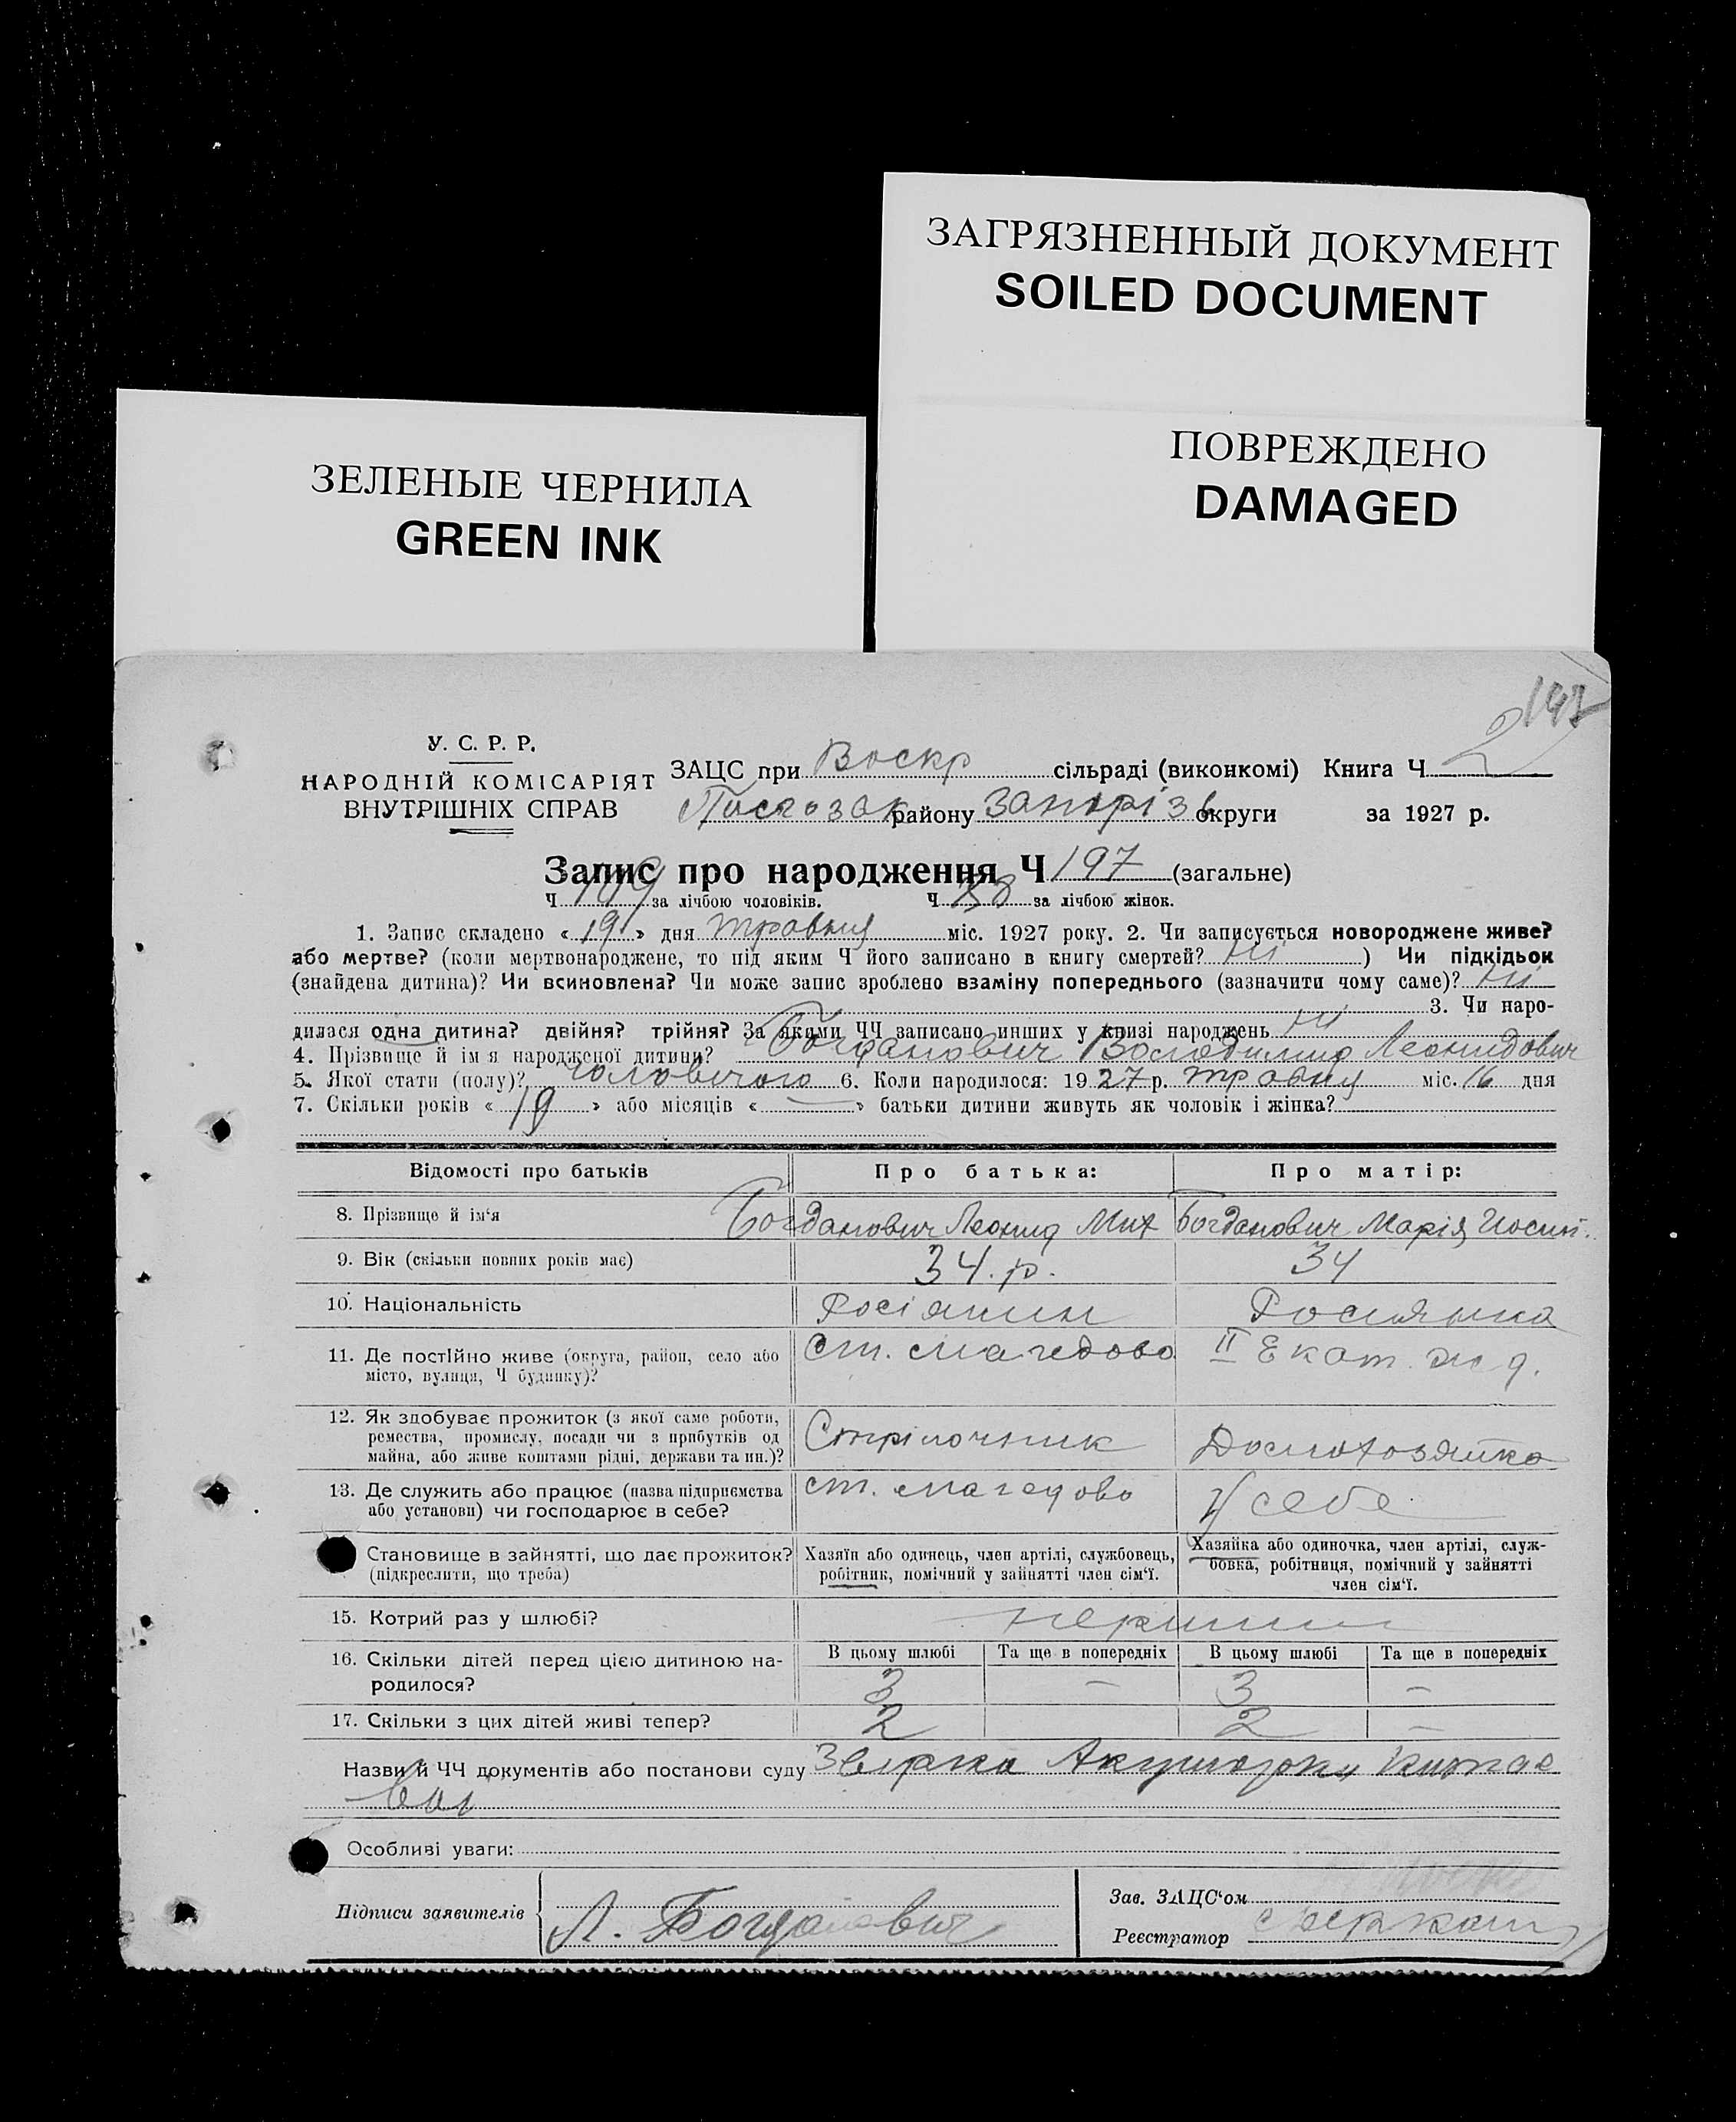 ЗАГРЯЗНЕННЫЙ ДОКУМЕНТ
SOILED DOCUMENT
ПОВРЕЖДЕНО
DAMAGED
ЗЕЛЕНЫЕ ЧЕРНИЛА
GREEN INK
У. С. Р. Р.
НАРОДНІЙ КОМІСАРІЯТ
ВНУТРІШНІХ СПРАВ
ЗАЦС при Воскр сільраді (виконкомі) Книга Ч 2
району Запоріз округи за 1927 р.
Запис про народження Ч 197 (загальне)
Ч 109 за лічбою чоловіків. Ч 88 за лічбою жінок.
1. Запис складено « 19 » дня травня міс. 1927 року. 2. Чи записується новороджене живе?
або мертве? (коли мертвонароджене, то під яким Ч його записано в книгу смертей? ні ) Чи підкідьок
(знайдена дитина)? Чи всиновлена? Чи може запис зроблено взаміну попереднього (зазначити чому саме)? ні
3. Чи наро-
дилася одна дитина? двійня? трійня? За якими ЧЧ записано инших у книзі народжень ні
4. Прізвище й ім'я народженої дитини? Богданович Володимир Леонидович
5. Якої стати (полу)? чоловічого 6. Коли народилося: 1927 р. травня міс. 16 дня
7. Скільки років « 19 » або місяців « — » батьки дитини живуть як чоловік і жінка?
Відомості про батьків Про батька: Про матір:
8. Прізвище й ім'я Богданович Леонид Мих Богданович Марія Иосип.
9. Вік (скільки повних років має) 34. р. 34
10. Національність Росіянин Росиянка
11. Де постійно живе (округа, район, село або
місто, вулиця, Ч будинку)? Ст. II Екат. ж. д.
12. Як здобуває прожиток (з якої саме роботи,
ремества, промислу, посади чи з прибутків од
майна, або живе коштами рідні, держави та ин.)? Стрілочник Домохозяйка
13. Де служить або працює (назва підприємства
або установи) чи господарює в себе? ст. У себе
Становище в зайнятті, що дає прожиток?
(підкреслити, що треба)
Хазяїн або одинець, член артілі, службовець,
робітник, помічний у зайнятті член сім'ї.
Хазяйка або одиночка, член артілі, служ-
бовка, робітниця, помічний у зайнятті
член сім'ї.
15. Котрий раз у шлюбі?
В цьому шлюбі Та ще в попередніх В цьому шлюбі Та ще в попередніх
16. Скільки дітей перед цією дитиною на-
родилося? 3 — 3 —
17. Скільки з цих дітей живі тепер? 2 2 —
Назви й ЧЧ документів або постанови суду Акушорки
Особливі уваги:
Підписи заявителів Л. Богданович
Зав. ЗАЦС'ом
Реєстратор